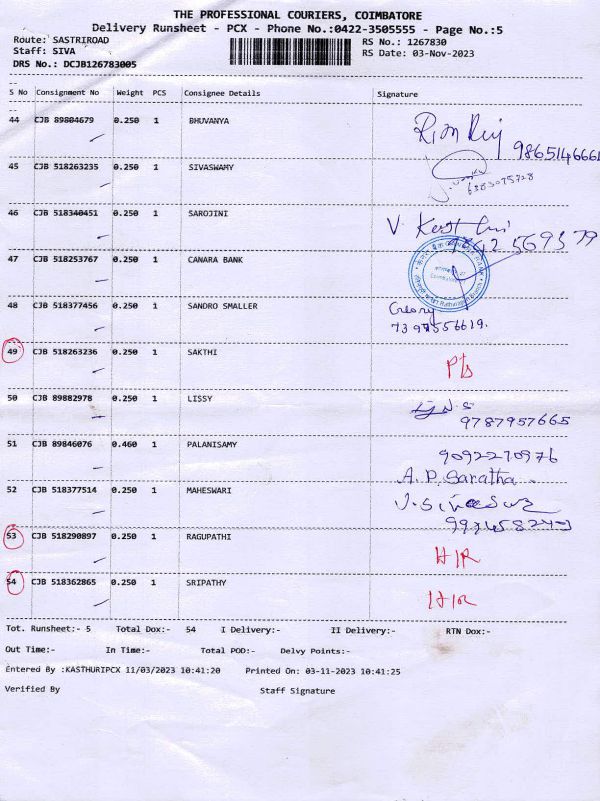 THE PROFESSIONAL COURIERS, COIMBATORE
Delivery Runsheet - PCX - Phone No.:0422-3505555 - Page No.:5
Route: SASTRIROAD RS No.: 1267830
Staff: SIVA RS Date: 03-Nov-2023
DRS No.: DCJB126783005
S No Consignment No Weight PCS Consignee Details Signature
44 CJB 89804679 0.250 1 BHUVANYA
9865146661
45 CJB 518263235 0.250 1 SIVASWAMY
46 CJB 518340451 0.250 1 SAROJINI V
47 CJB 518253767 0.250 1 CANARA BANK
48 CJB 518377456 0.250 1 SANDRO SMALLER
7397556619.
49 CJB 518263236 0.250 1 SAKTHI
50 CJB 89882978 0.250 1 LISSY
9787957665
51 CJB 89846076 0.460 1 PALANISAMY 9092270976
A.P. Saratha
52 CJB 518377514 0.250 1 MAHESWARI
53 CJB 518290897 0.250 1 RAGUPATHI H/R
54 CJB 518362865 0.250 1 SRIPATHY
Tot. Runsheet:- 5 Total Dox:- 54 I Delivery:- II Delivery:- RTN Dox:-
Out Time:- In Time:- Total POD:- Delvy Points:-
Entered By :KASTHURIPCX 11/03/2023 10:41:20 Printed On: 03-11-2023 10:41:25
Verified By Staff Signature